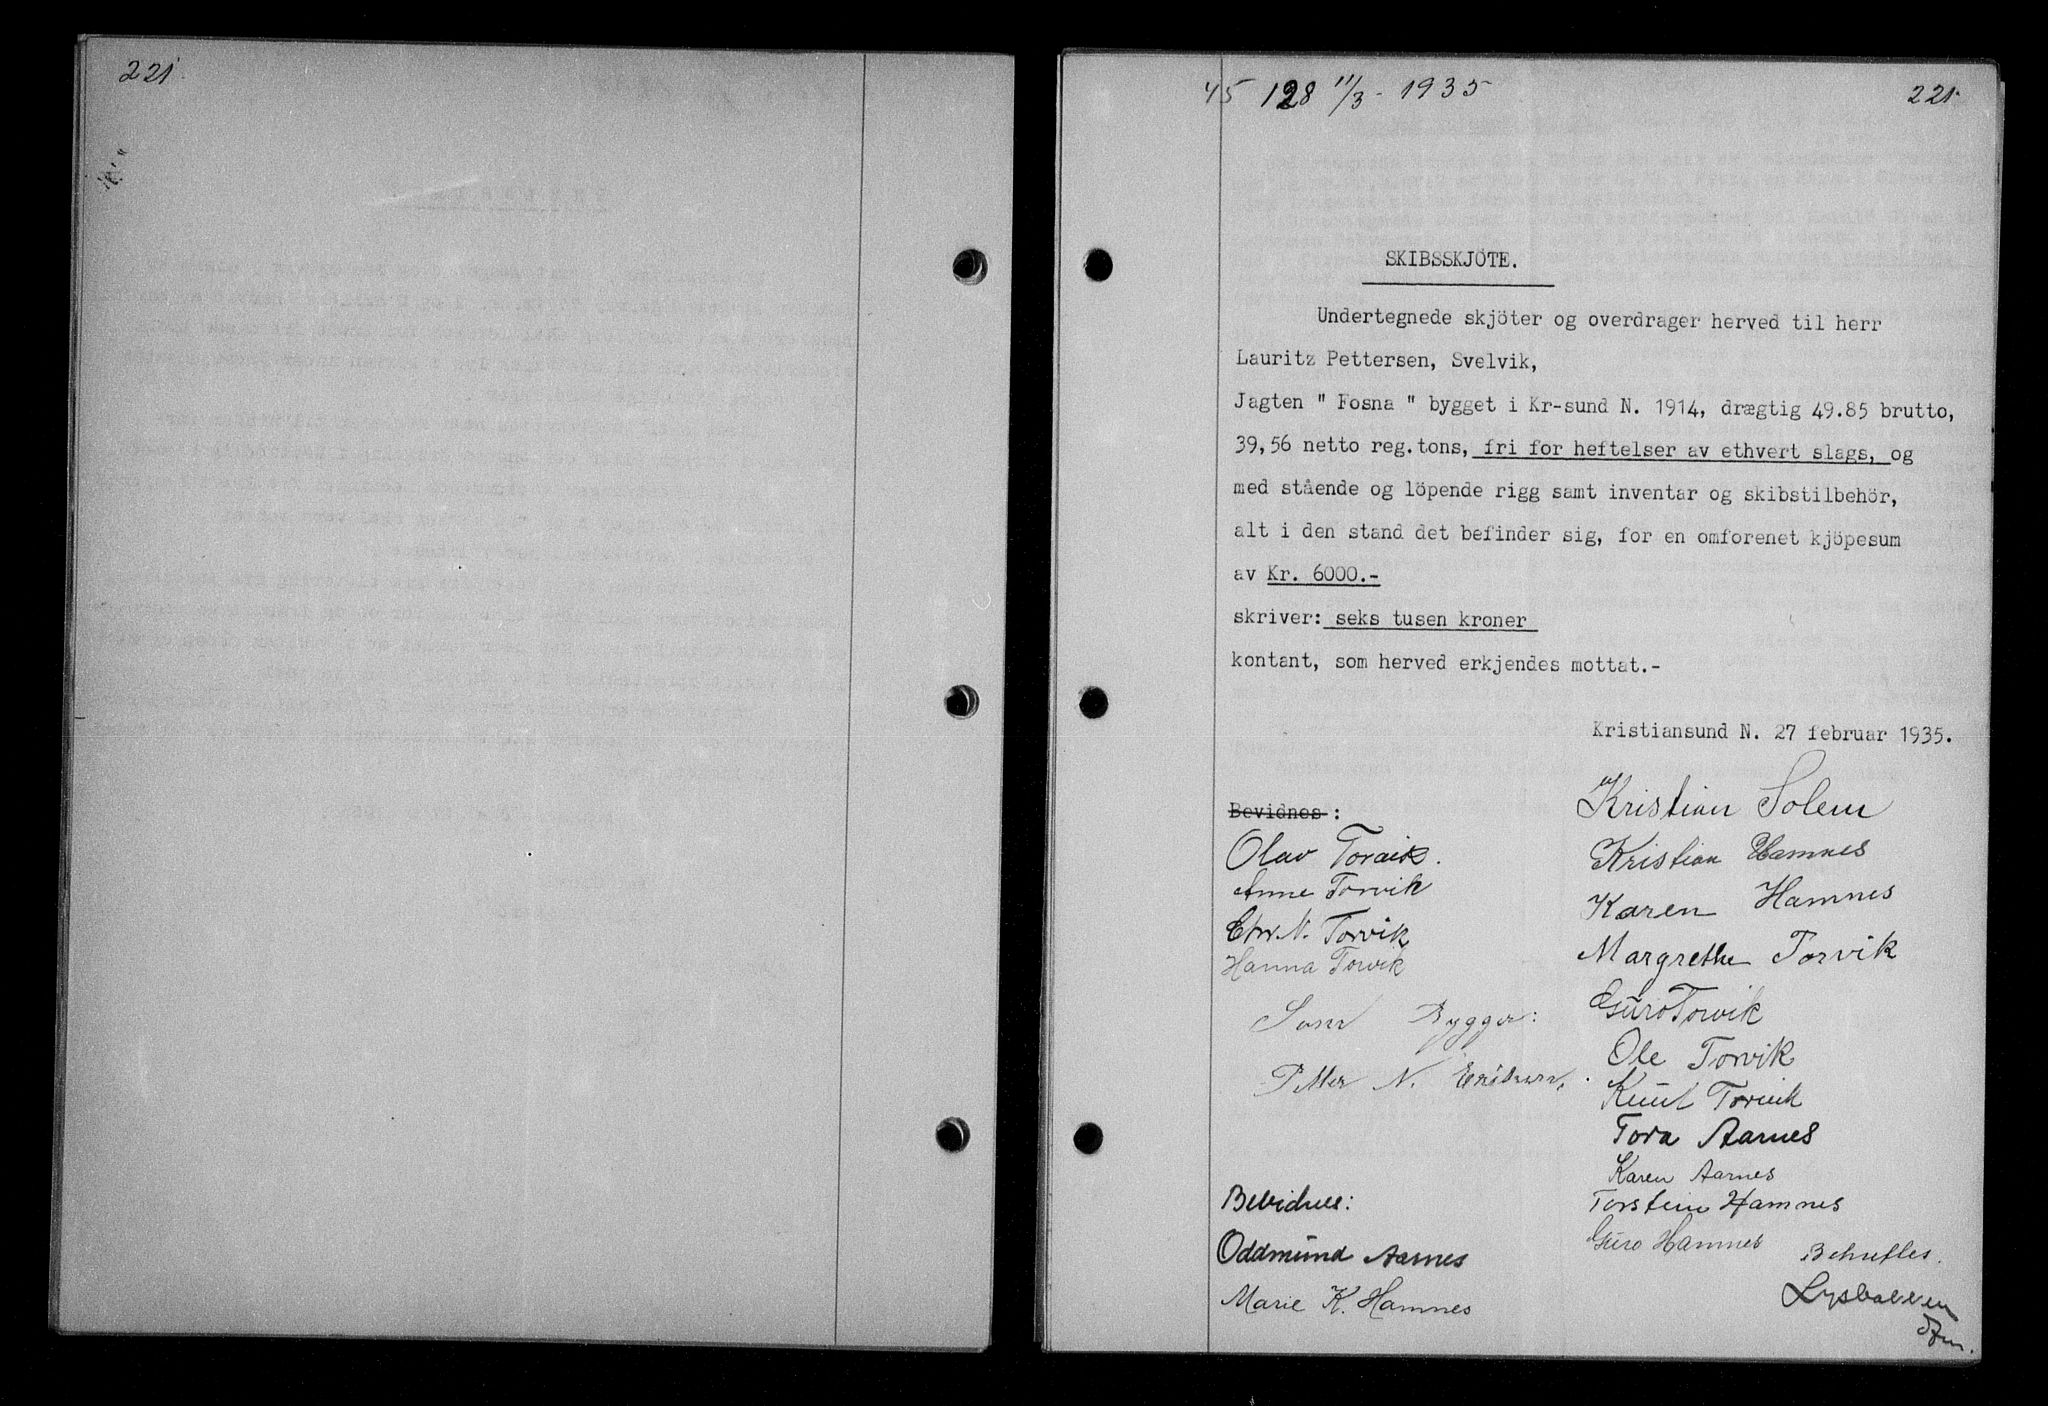 221
45 128 11/3 - 1935
221
SKIBSSKJÖTE.
Undertegnede skjöter og overdrager herved til herr
Lauritz Pettersen, Svelvik,
Jagten " Fosna " bygget i Kr-sund N. 1914, drægtig 49.85 brutto,
39,56 netto reg.tons, fri for heftelser av ethvert slags, og
med stående og löpende rigg samt inventar og skibstilbehör,
alt i den stand det befinder sig, for en omforenet kjöpesum
av Kr. 6000.-
skriver: seks tusen kroner
kontant, som herved erkjendes mottat.-
Kristiansund N. 27 februar 1935.
Bevidnes :
Olav Torvik.
Anne Torvik
Chr. N. Torvik
Hanna Torvik
Som Bygger:
Petter N.
Bevidnes:
Oddmund Aarnes
Marie K. Hamnes
Kristian Solem
Kristian Hamnes
Karen Hamnes
Margrethe Torvik
Guro Torvik
Ole Torvik
Knut Torvik
Tora Aarnes
Karen Aarnes
Torstein Hamnes
Guro Hamnes